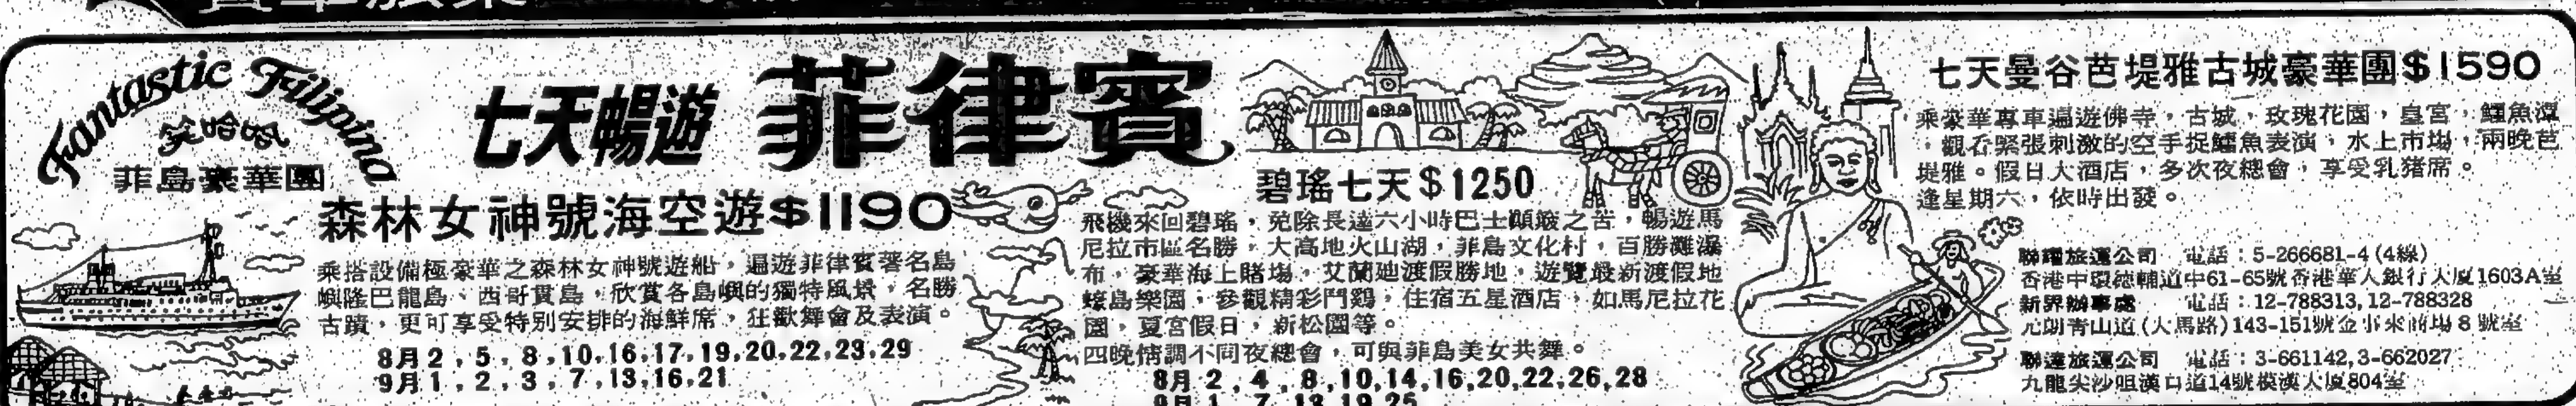 Fantastic Filipina
笑哈哈
菲島豪華團
七天暢遊 菲律賓
森林女神號海空遊$1190
乘搭設備極豪華之森林女神號遊船，遍遊菲律賓著名島
嶼隆巴龍島、西哥賈島，欣賞各島嶼的獨特風景，名勝
古蹟，更可享受特別安排的海鮮席，狂歡舞會及表演。
8月2，5，8，10，16，17，19，20，22，23，29
9月1，2，3，7，13，16，21
碧瑤七天$1250
飛機來回碧瑤，免除長達六小時巴士顛簸之苦，暢遊馬
尼拉市區名勝，大高地火山湖，菲島文化村，百勝灘瀑
布，豪華海上賭場，艾蘭廸渡假勝地，遊覽最新渡假地
蠔島樂園，參觀精彩鬥鷄，住宿五星酒店，如馬尼拉花
園，夏宮假日，新松園等。
四晚情調不同夜總會，可與菲島美女共舞。
8月2，4，8，10，14，16，20，22，26，28
9月1，7，13，19，25
七天曼谷芭堤雅古城豪華團$1590
乘豪華專車遍遊佛寺，古城，玫瑰花園，皇宮，鱷魚潭
，觀看緊張刺激的空手捉鱷魚表演，水上市場，兩晚芭
堤雅。假日大酒店，多次夜總會，享受乳猪席。
逢星期六，依時出發。
聯耀旅運公司 電話：5-266681-4(4線)
香港中環德輔道中61-65號香港華人銀行大廈1603A室
新界辦事處 電話：12-788313,12-788328
元朗青山道(大馬路)143-151號金事來商場8號室
聯達旅運公司 電話：3-661142,3-662027
九龍尖沙咀漢口道14號模漢大廈804室